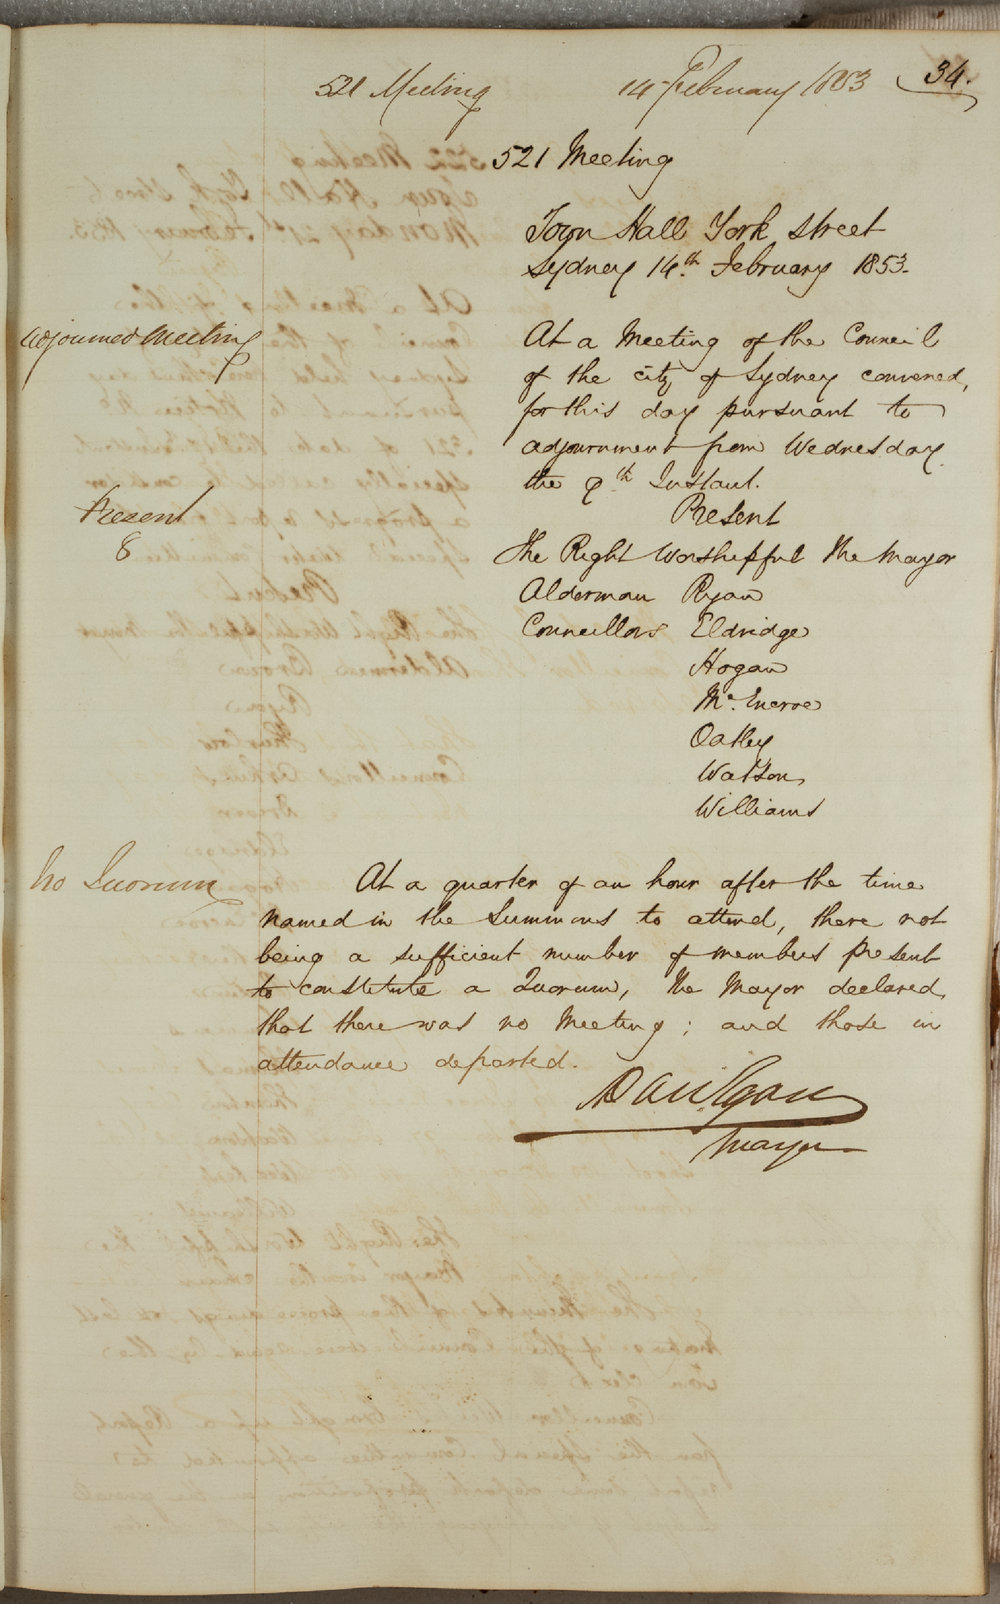 521 Meeting 14 February 1853 34.
521 Meeting
Town Hall York street
Sydney 14th February 1853.
Adjourned Meeting
At a Meeting of the Council
of the city of Sydney convened,
for this day pursuant to
adjournment from Wednesday
the 9th Instant.
Present
8
Present
The Right Worshipful the Mayor
Alderman Ryan
Councillors Eldridge
Hogan
Mc.Encroe
Oatley
Watson
Williams
No Quorum
At a quarter of an hour after the time
named in the Summons to attend, there not
being a sufficient number of members present
to constitute a Quorum, the Mayor declared,
that there was no Meeting; and those in
attendance departed.
Danl Egan
Mayor